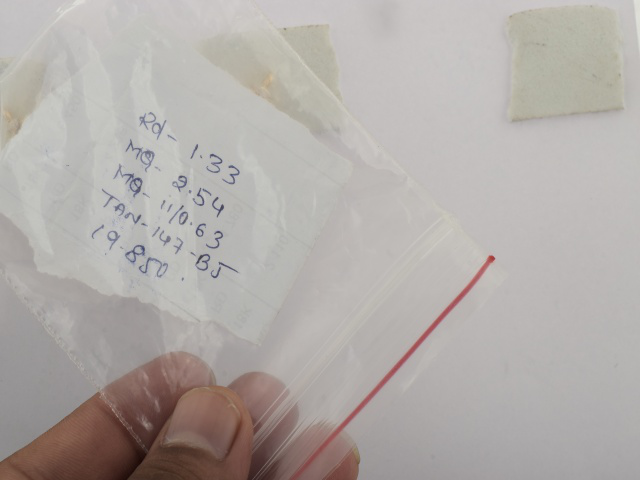 Rd- 1.33
MQ- 2.54
MQ- 11/0.63
TAN-147-BJ
19.850.